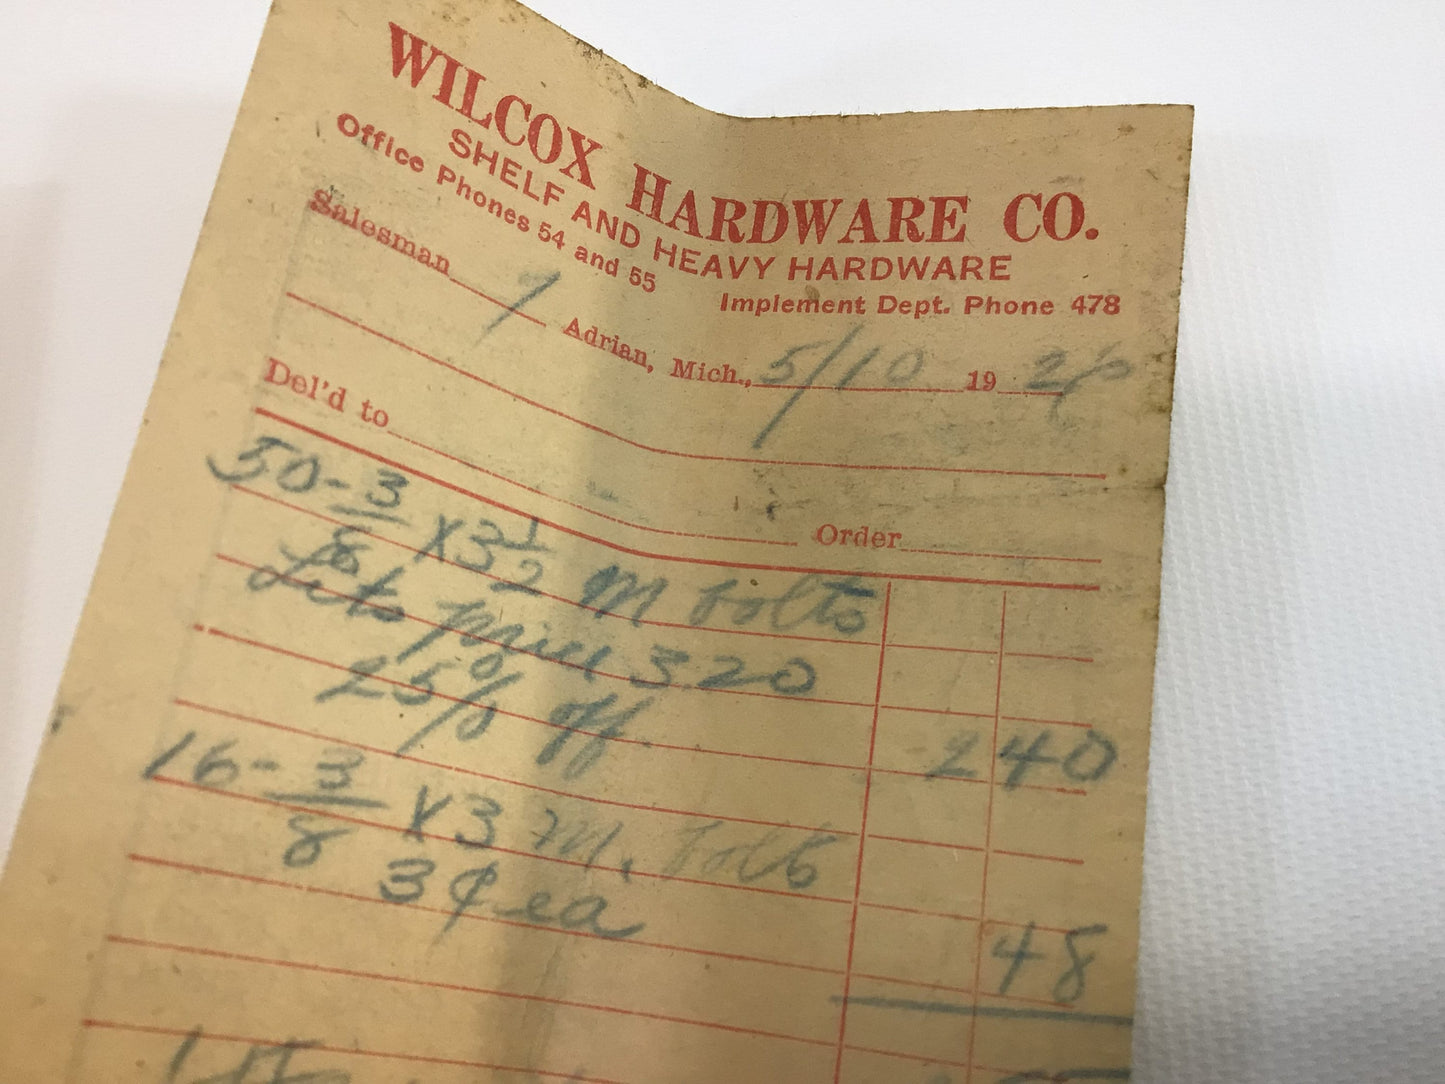 WILCOX HARDWARE CO.
SHELF AND HEAVY HARDWARE
Office Phones 54 and 55 Implement Dept. Phone 478
Salesman 7 Adrian, Mich., 5/10 19 26
Del'd to Order
50 - 3/8 x 3 1/2 M bolts
price 320
25% off. 2 40
16 - 3/8 x 3 M. bolts
3¢ ea 48